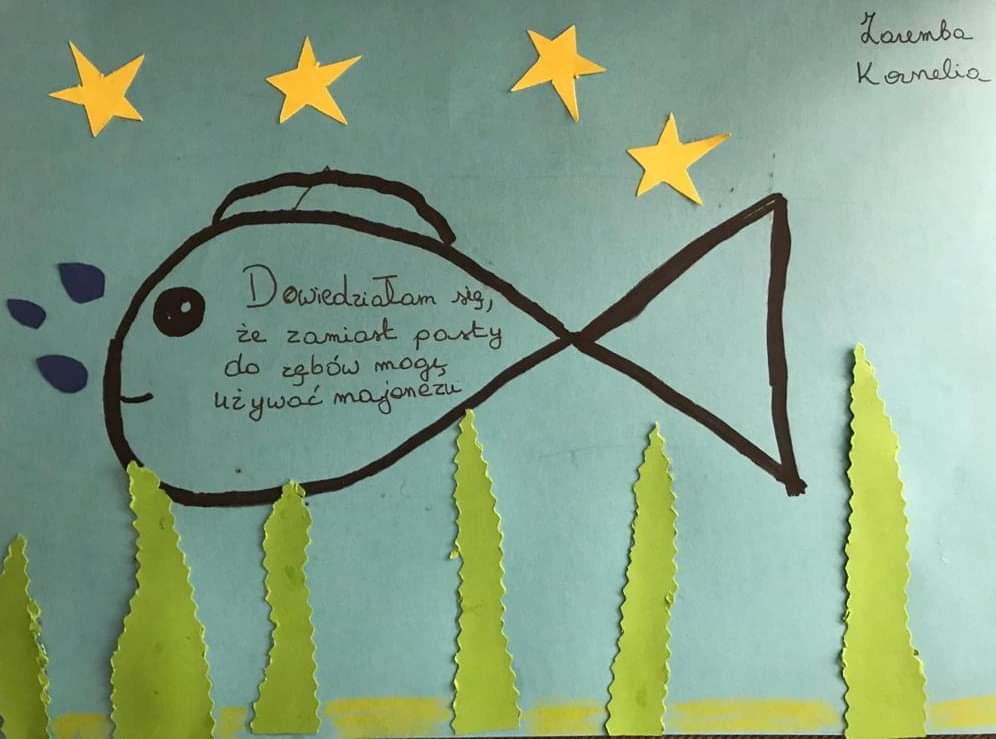 Zaremba
Kornelia
Dowiedziałam się,
że zamiast pasty
do zębów mogę
używać majonezu